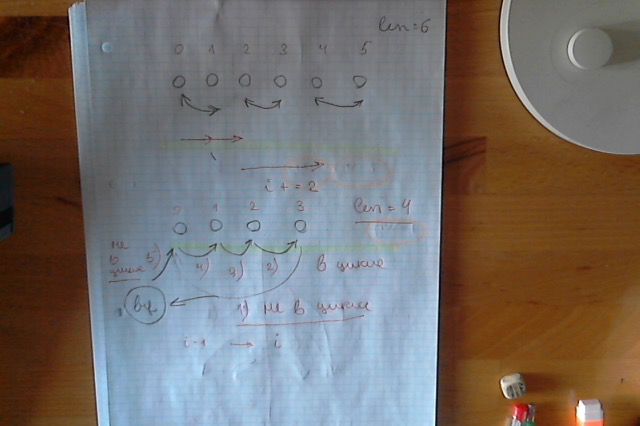 len=6
0 1 2 3 4 5
i
i+=2
0 1 2 3
len = 4
не
в
цикле
5)
4)
3)
2)
в цикле
buf
1) не в цикле
i-1 → i